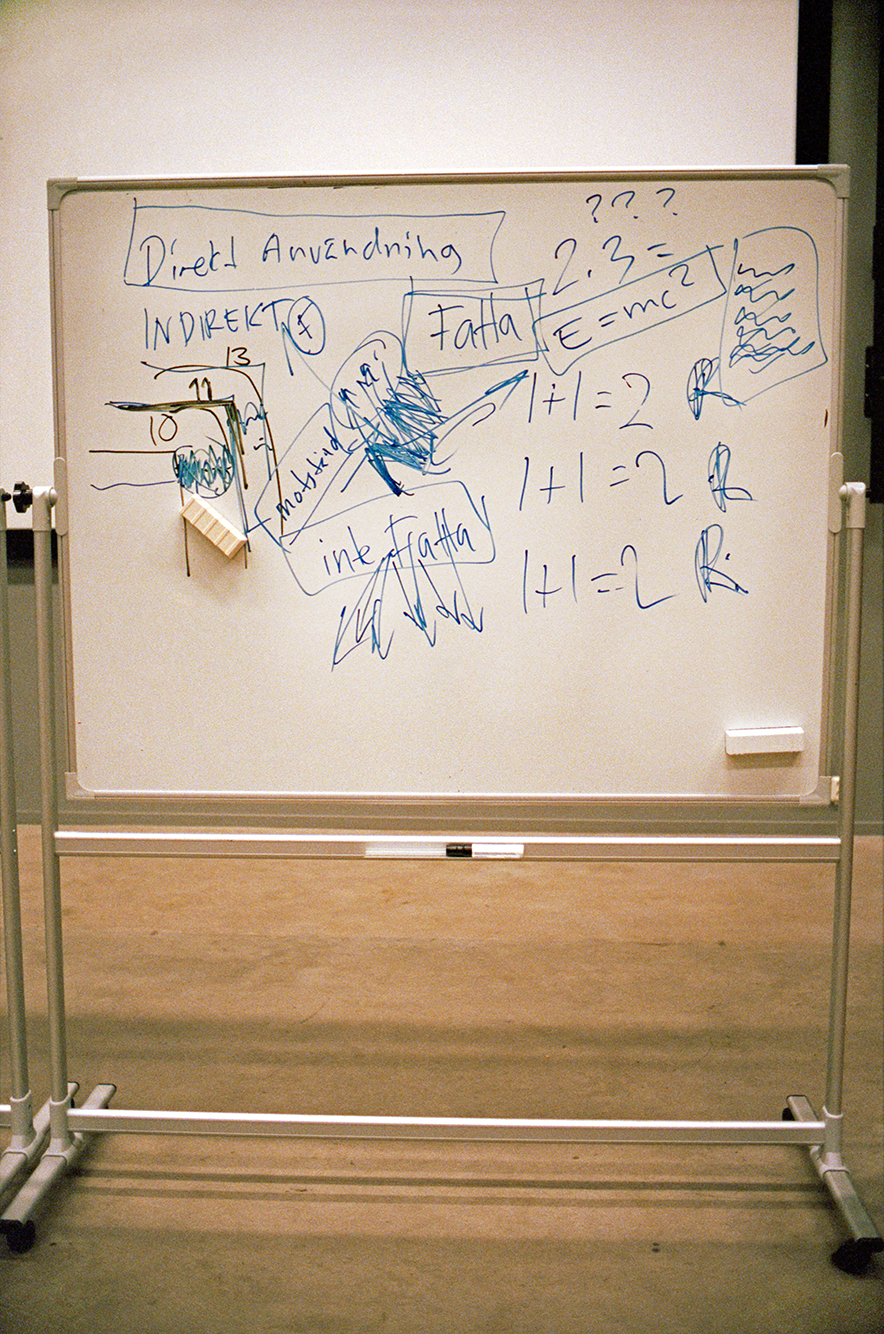 Direkt Användning
???
2.3=
INDIREKT
Fatta
E=mc²
13
11
10
1+1=2 R
motstånd
1+1=2 R
inte Fatta
1+1=2 R